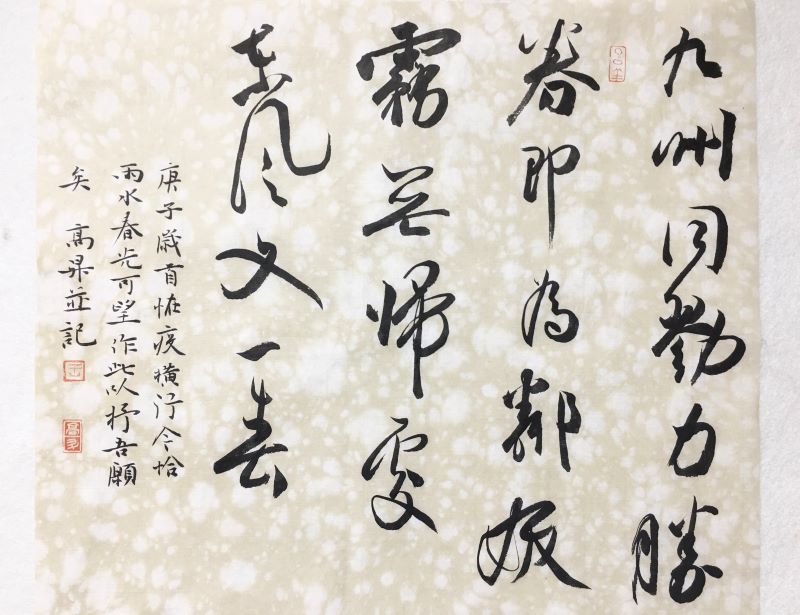 九州同勠力勝
眷即為鄰妖
霧無帰處
東風又一春
庚子歲首恠疫橫行今恰
雨水春光可望作此以抒吾願
矣 高昇並記